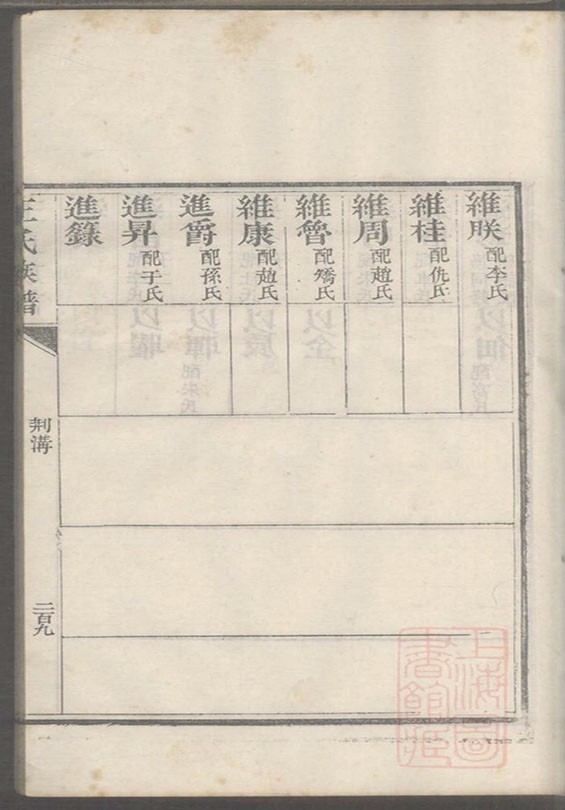 維朕 配李氏
維桂 配仇氏
維周 配趙氏
維魯 配矯氏
維康 配趙氏
進爵 配孫氏
進昇 配于氏
進錄
王氏族譜
荆溝
二百九
上海圖
書館藏